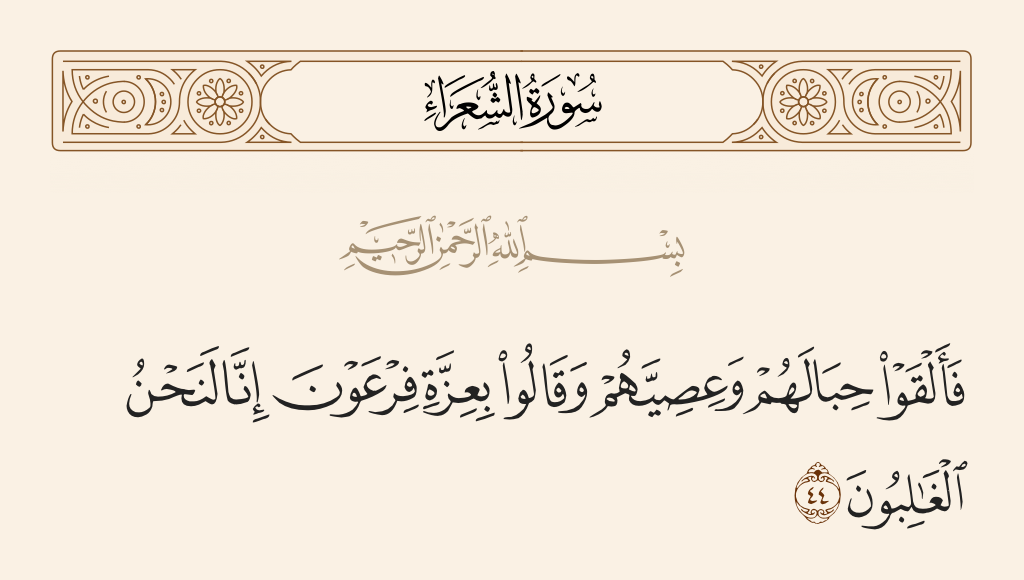 سُورَةُ الشُّعَرَاءِ
بِسْمِ ٱللَّهِ ٱلرَّحْمَٰنِ ٱلرَّحِيمِ
فَأَلْقَوْا۟ حِبَالَهُمْ وَعِصِيَّهُمْ وَقَالُوا۟ بِعِزَّةِ فِرْعَوْنَ إِنَّا لَنَحْنُ
ٱلْغَٰلِبُونَ ٤٤